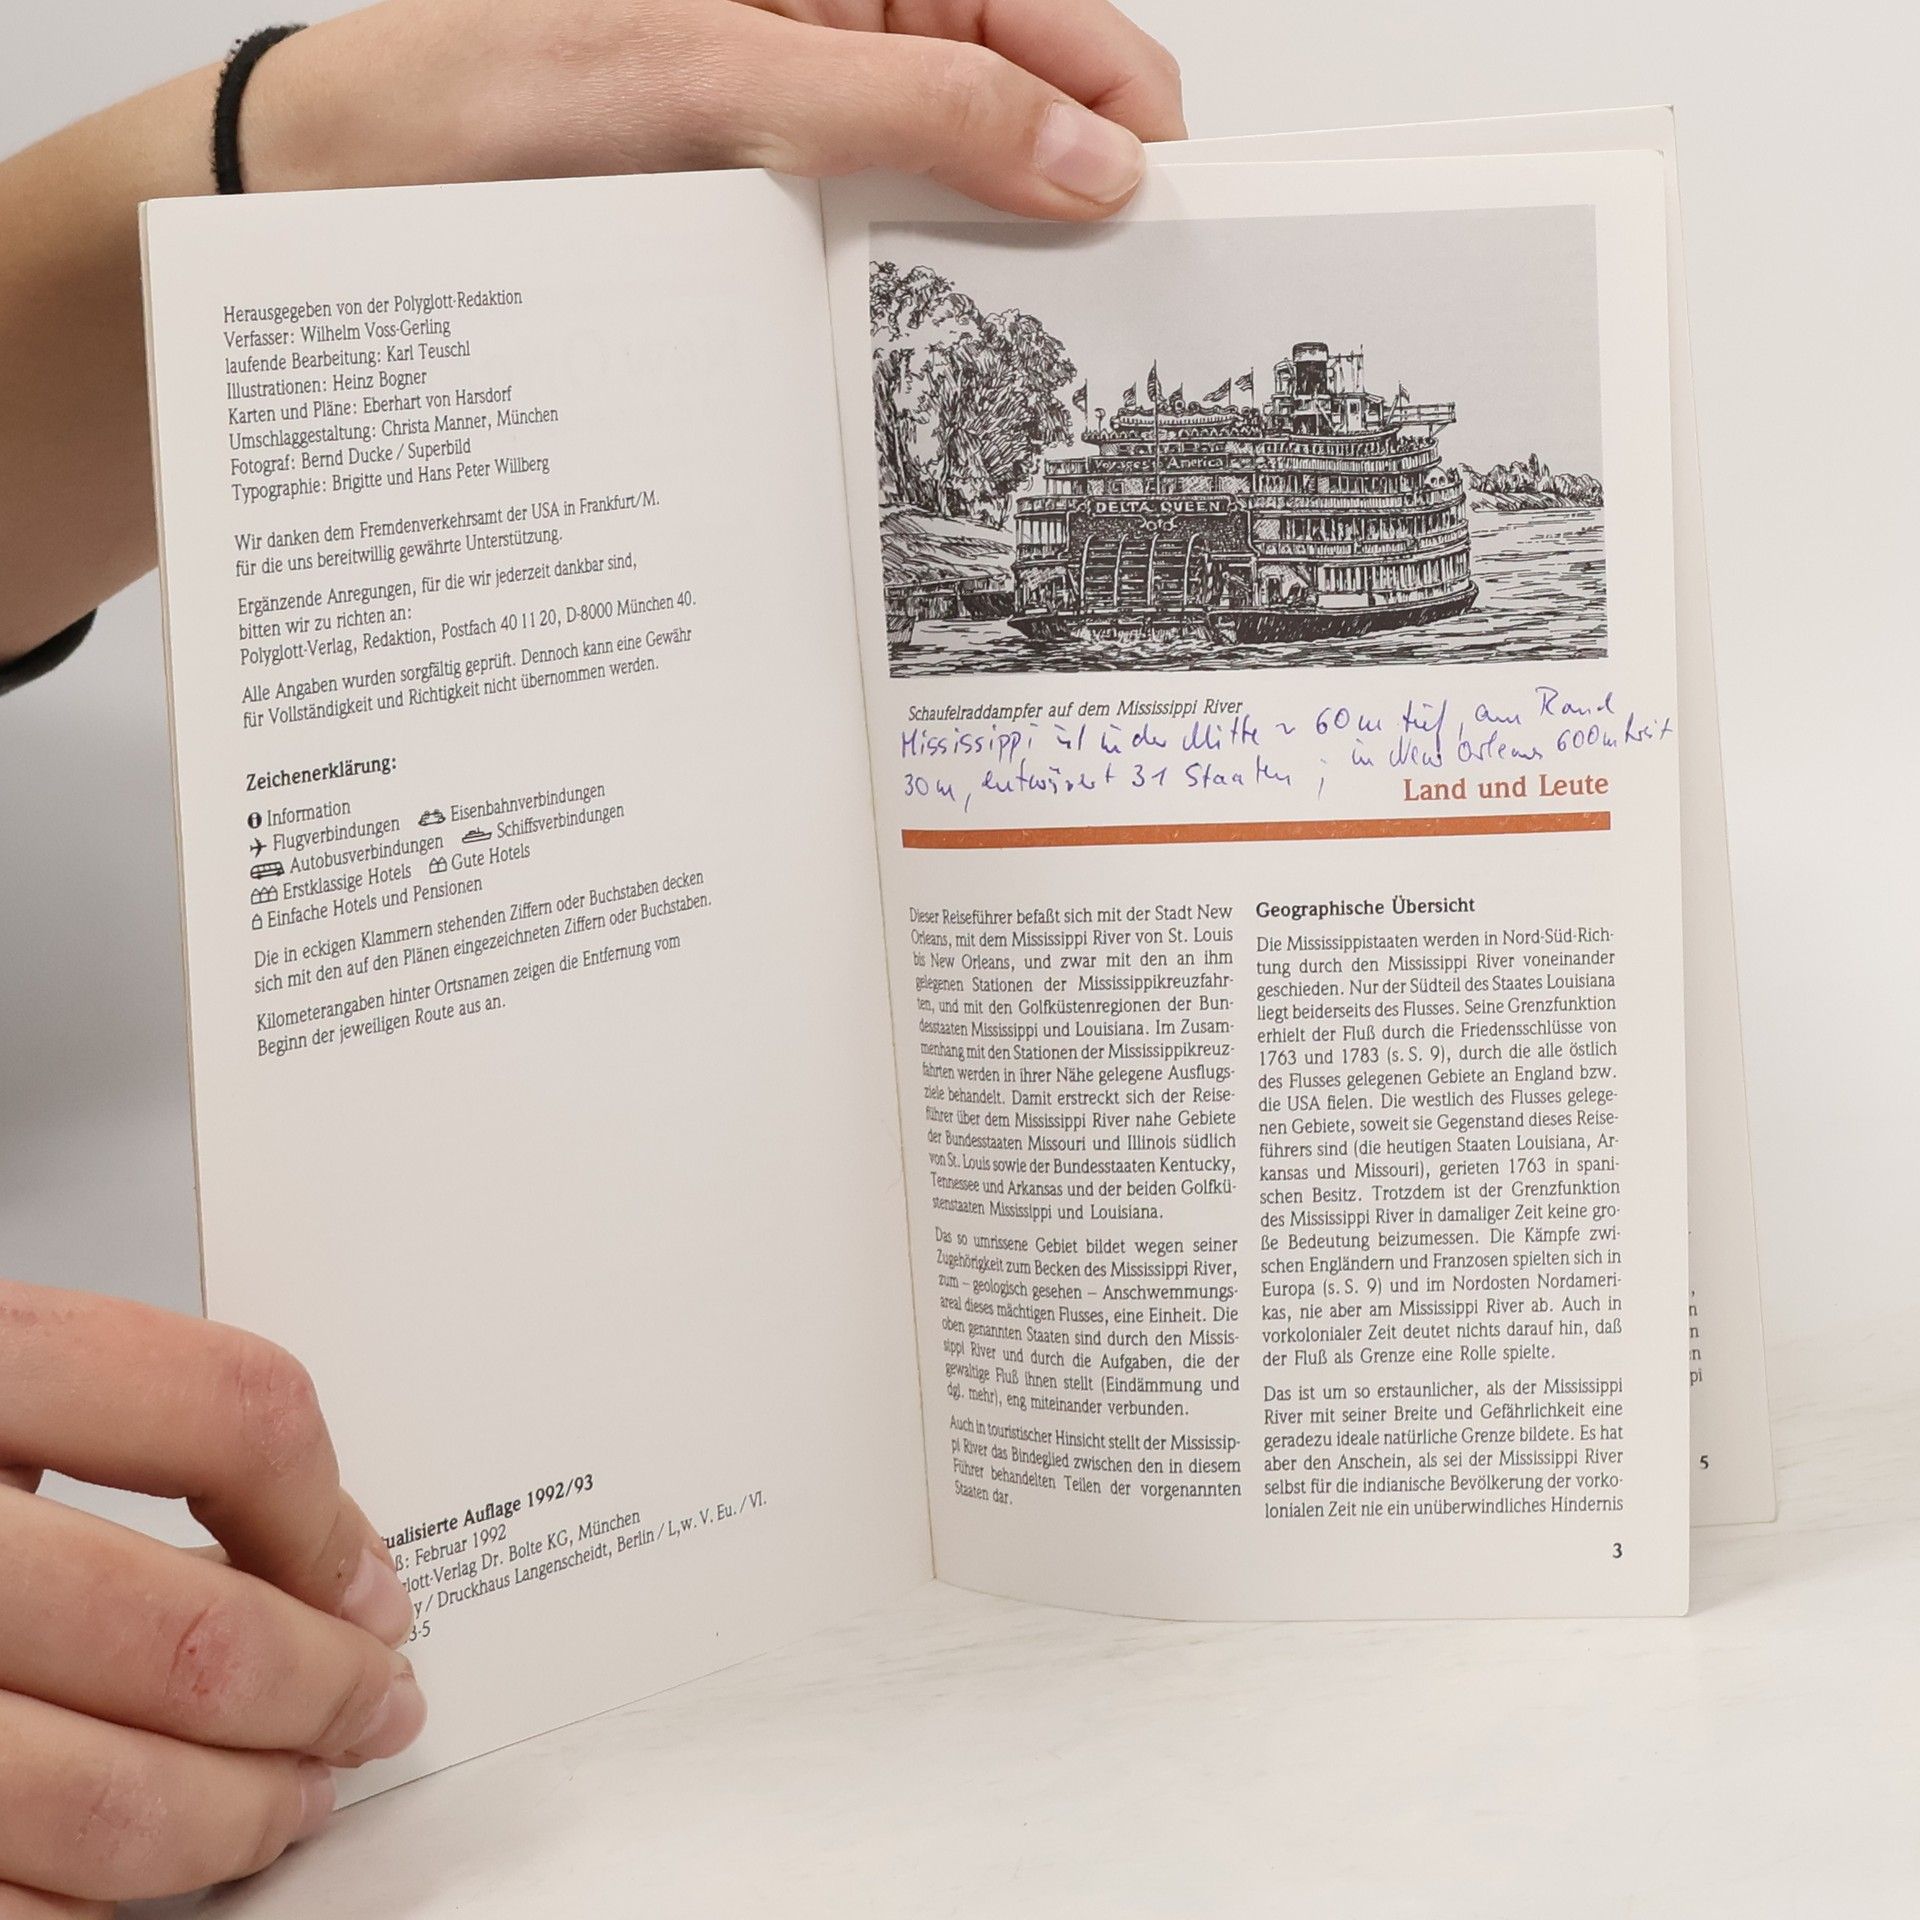 Herausgegeben von der Polyglott-Redaktion
Verfasser: Wilhelm Voss-Gerling
laufende Bearbeitung: Karl Teuschl
Illustrationen: Heinz Bogner
Karten und Pläne: Eberhart von Harsdorf
Umschlaggestaltung: Christa Manner, München
Fotograf: Bernd Ducke / Superbild
Typographie: Brigitte und Hans Peter Willberg
Wir danken dem Fremdenverkehrsamt der USA in Frankfurt/M.
für die uns bereitwillig gewährte Unterstützung.
Ergänzende Anregungen, für die wir jederzeit dankbar sind,
bitten wir zu richten an:
Polyglott-Verlag, Redaktion, Postfach 40 11 20, D-8000 München 40.
Alle Angaben wurden sorgfältig geprüft. Dennoch kann eine Gewähr
für Vollständigkeit und Richtigkeit nicht übernommen werden.
Zeichenerklärung:
Information
Flugverbindungen Eisenbahnverbindungen
Autobusverbindungen Schiffsverbindungen
Erstklassige Hotels Gute Hotels
Einfache Hotels und Pensionen
Die in eckigen Klammern stehenden Ziffern oder Buchstaben decken
sich mit den auf den Plänen eingezeichneten Ziffern oder Buchstaben.
Kilometerangaben hinter Ortsnamen zeigen die Entfernung vom
Beginn der jeweiligen Route aus an.
tualisierte Auflage 1992/93
ß: Februar 1992
lott-Verlag Dr. Bolte KG, München
y / Druckhaus Langenscheidt, Berlin / L,w. V. Eu. / VI.
3-5
Voyages America
DELTA QUEEN
Schaufelraddampfer auf dem Mississippi River
Mississippi ist in der Mitte ~ 60 m tief, am Rand
30 m, entwässert 31 Staaten ; in New Orleans 600 m breit
Land und Leute
Dieser Reiseführer befaßt sich mit der Stadt New
Orleans, mit dem Mississippi River von St. Louis
bis New Orleans, und zwar mit den an ihm
gelegenen Stationen der Mississippikreuzfahr-
ten, und mit den Golfküstenregionen der Bun-
desstaaten Mississippi und Louisiana. Im Zusam-
menhang mit den Stationen der Mississippikreuz-
fahrten werden in ihrer Nähe gelegene Ausflugs-
ziele behandelt. Damit erstreckt sich der Reise-
führer über dem Mississippi River nahe Gebiete
der Bundesstaaten Missouri und Illinois südlich
von St. Louis sowie der Bundesstaaten Kentucky,
Tennessee und Arkansas und der beiden Golfkü-
stenstaaten Mississippi und Louisiana.
Das so umrissene Gebiet bildet wegen seiner
Zugehörigkeit zum Becken des Mississippi River,
zum – geologisch gesehen – Anschwemmungs-
areal dieses mächtigen Flusses, eine Einheit. Die
oben genannten Staaten sind durch den Missis-
sippi River und durch die Aufgaben, die der
gewaltige Fluß ihnen stellt (Eindämmung und
dgl. mehr), eng miteinander verbunden.
Auch in touristischer Hinsicht stellt der Mississip-
pi River das Bindeglied zwischen den in diesem
Führer behandelten Teilen der vorgenannten
Staaten dar.
Geographische Übersicht
Die Mississippistaaten werden in Nord-Süd-Rich-
tung durch den Mississippi River voneinander
geschieden. Nur der Südteil des Staates Louisiana
liegt beiderseits des Flusses. Seine Grenzfunktion
erhielt der Fluß durch die Friedensschlüsse von
1763 und 1783 (s. S. 9), durch die alle östlich
des Flusses gelegenen Gebiete an England bzw.
die USA fielen. Die westlich des Flusses gelege-
nen Gebiete, soweit sie Gegenstand dieses Reise-
führers sind (die heutigen Staaten Louisiana, Ar-
kansas und Missouri), gerieten 1763 in spani-
schen Besitz. Trotzdem ist der Grenzfunktion
des Mississippi River in damaliger Zeit keine gro-
ße Bedeutung beizumessen. Die Kämpfe zwi-
schen Engländern und Franzosen spielten sich in
Europa (s. S. 9) und im Nordosten Nordameri-
kas, nie aber am Mississippi River ab. Auch in
vorkolonialer Zeit deutet nichts darauf hin, daß
der Fluß als Grenze eine Rolle spielte.
Das ist um so erstaunlicher, als der Mississippi
River mit seiner Breite und Gefährlichkeit eine
geradezu ideale natürliche Grenze bildete. Es hat
aber den Anschein, als sei der Mississippi River
selbst für die indianische Bevölkerung der vorko-
lonialen Zeit nie ein unüberwindliches Hindernis
3
n
n
n
pi
5